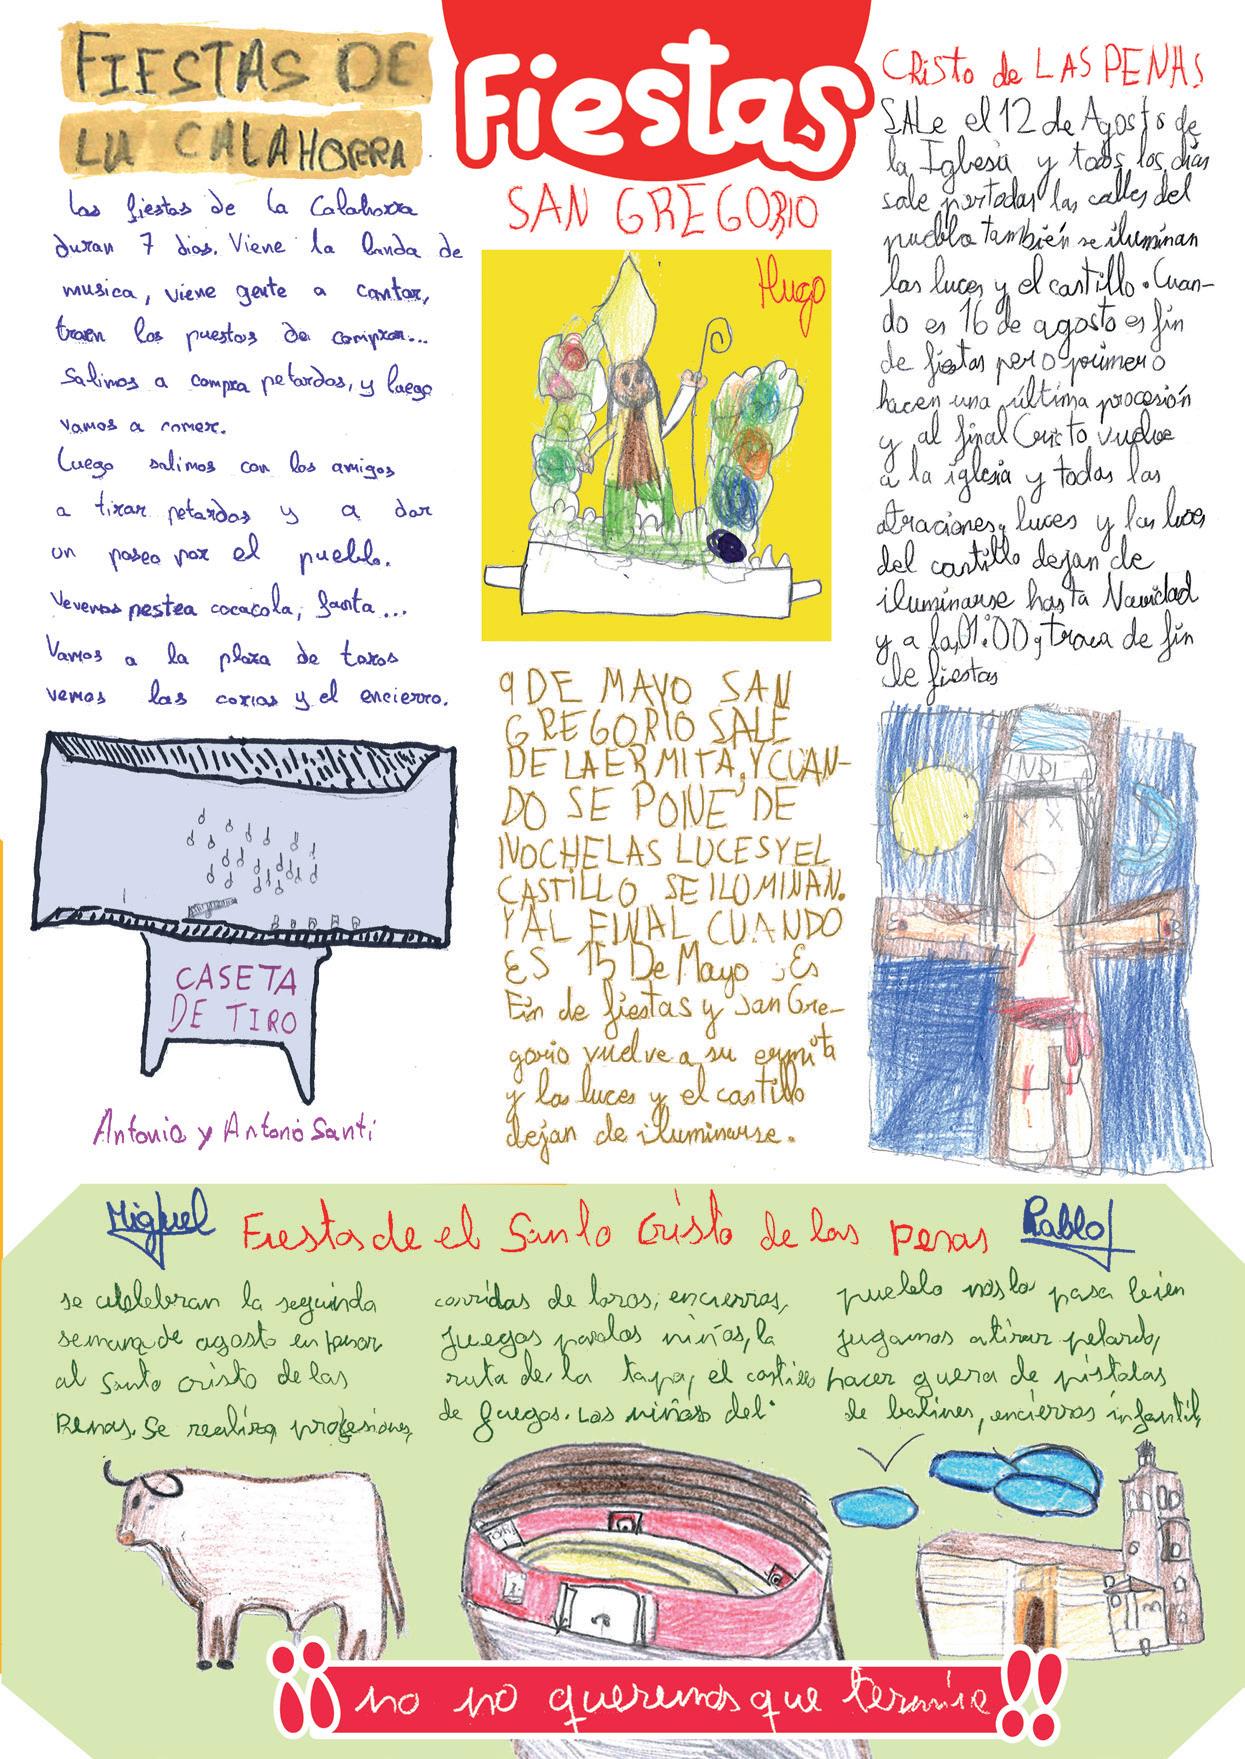 FIESTAS DE
LA CALAHORRA
Las fiestas de la Calahorra
duran 7 dias. Viene la banda de
musica, viene gente a cantar,
traen los puestos de comprar...
Salimos a compra petardos, y luego
vamos a comer.
Luego salimos con los amigos
a tirar petardos y a dar
un paseo por el pueblo.
Vevemos nestea cocacola, fanta...
Vamos a la plaza de toros
vemos las corias y el encierro.
CASETA
DE TIRO
Antonio y Antonio Santi
Fiestas
SAN GREGORIO
Hugo
9 DE MAYO SAN
GREGORIO SALE
DE LA ERMITA, Y CUAN-
DO SE PONE DE
NOCHE LAS LUCES Y EL
CASTILLO SE ILUMINAN.
Y AL FINAL CUANDO
ES 15 De Mayo; Es
Fin de fiestas y San Gre-
gorio vuelve a su ermita
y las luces y el castillo
dejan de iluminarse.
CRisto de LAS PENAS
SALe el 12 de Agosto de
la Iglesia y todos los días
sale por todas las calles del
pueblo también se iluminan
las luces y el castillo. Cuan-
do es 16 de agosto es fin
de fiestas pero primero
hacen una última procesión
y al final Cristo vuelve
a la iglesia y todas las
atraciones, luces y las luces
del castillo dejan de
iluminarse hasta Navidad
y a la 01:00, traca de fin
de fiestas
INRI
Miguel
Fiestas de el Santo Cristo de las penas
Pablo
se celebran la segunda
semana de agosto en favor
al Santo cristo de las
Penas. Se realiza profesiones,
corridas de toros, encierros,
juegos para los niños, la
ruta de la tapa, el castillo
de fuegos. Los niños del
pueblo nos lo pasa bien
jugamos a tirar petardo,
hacer guera de pistolas
de balines, encierros infantil,
¡¡ no no queremos que termine !!